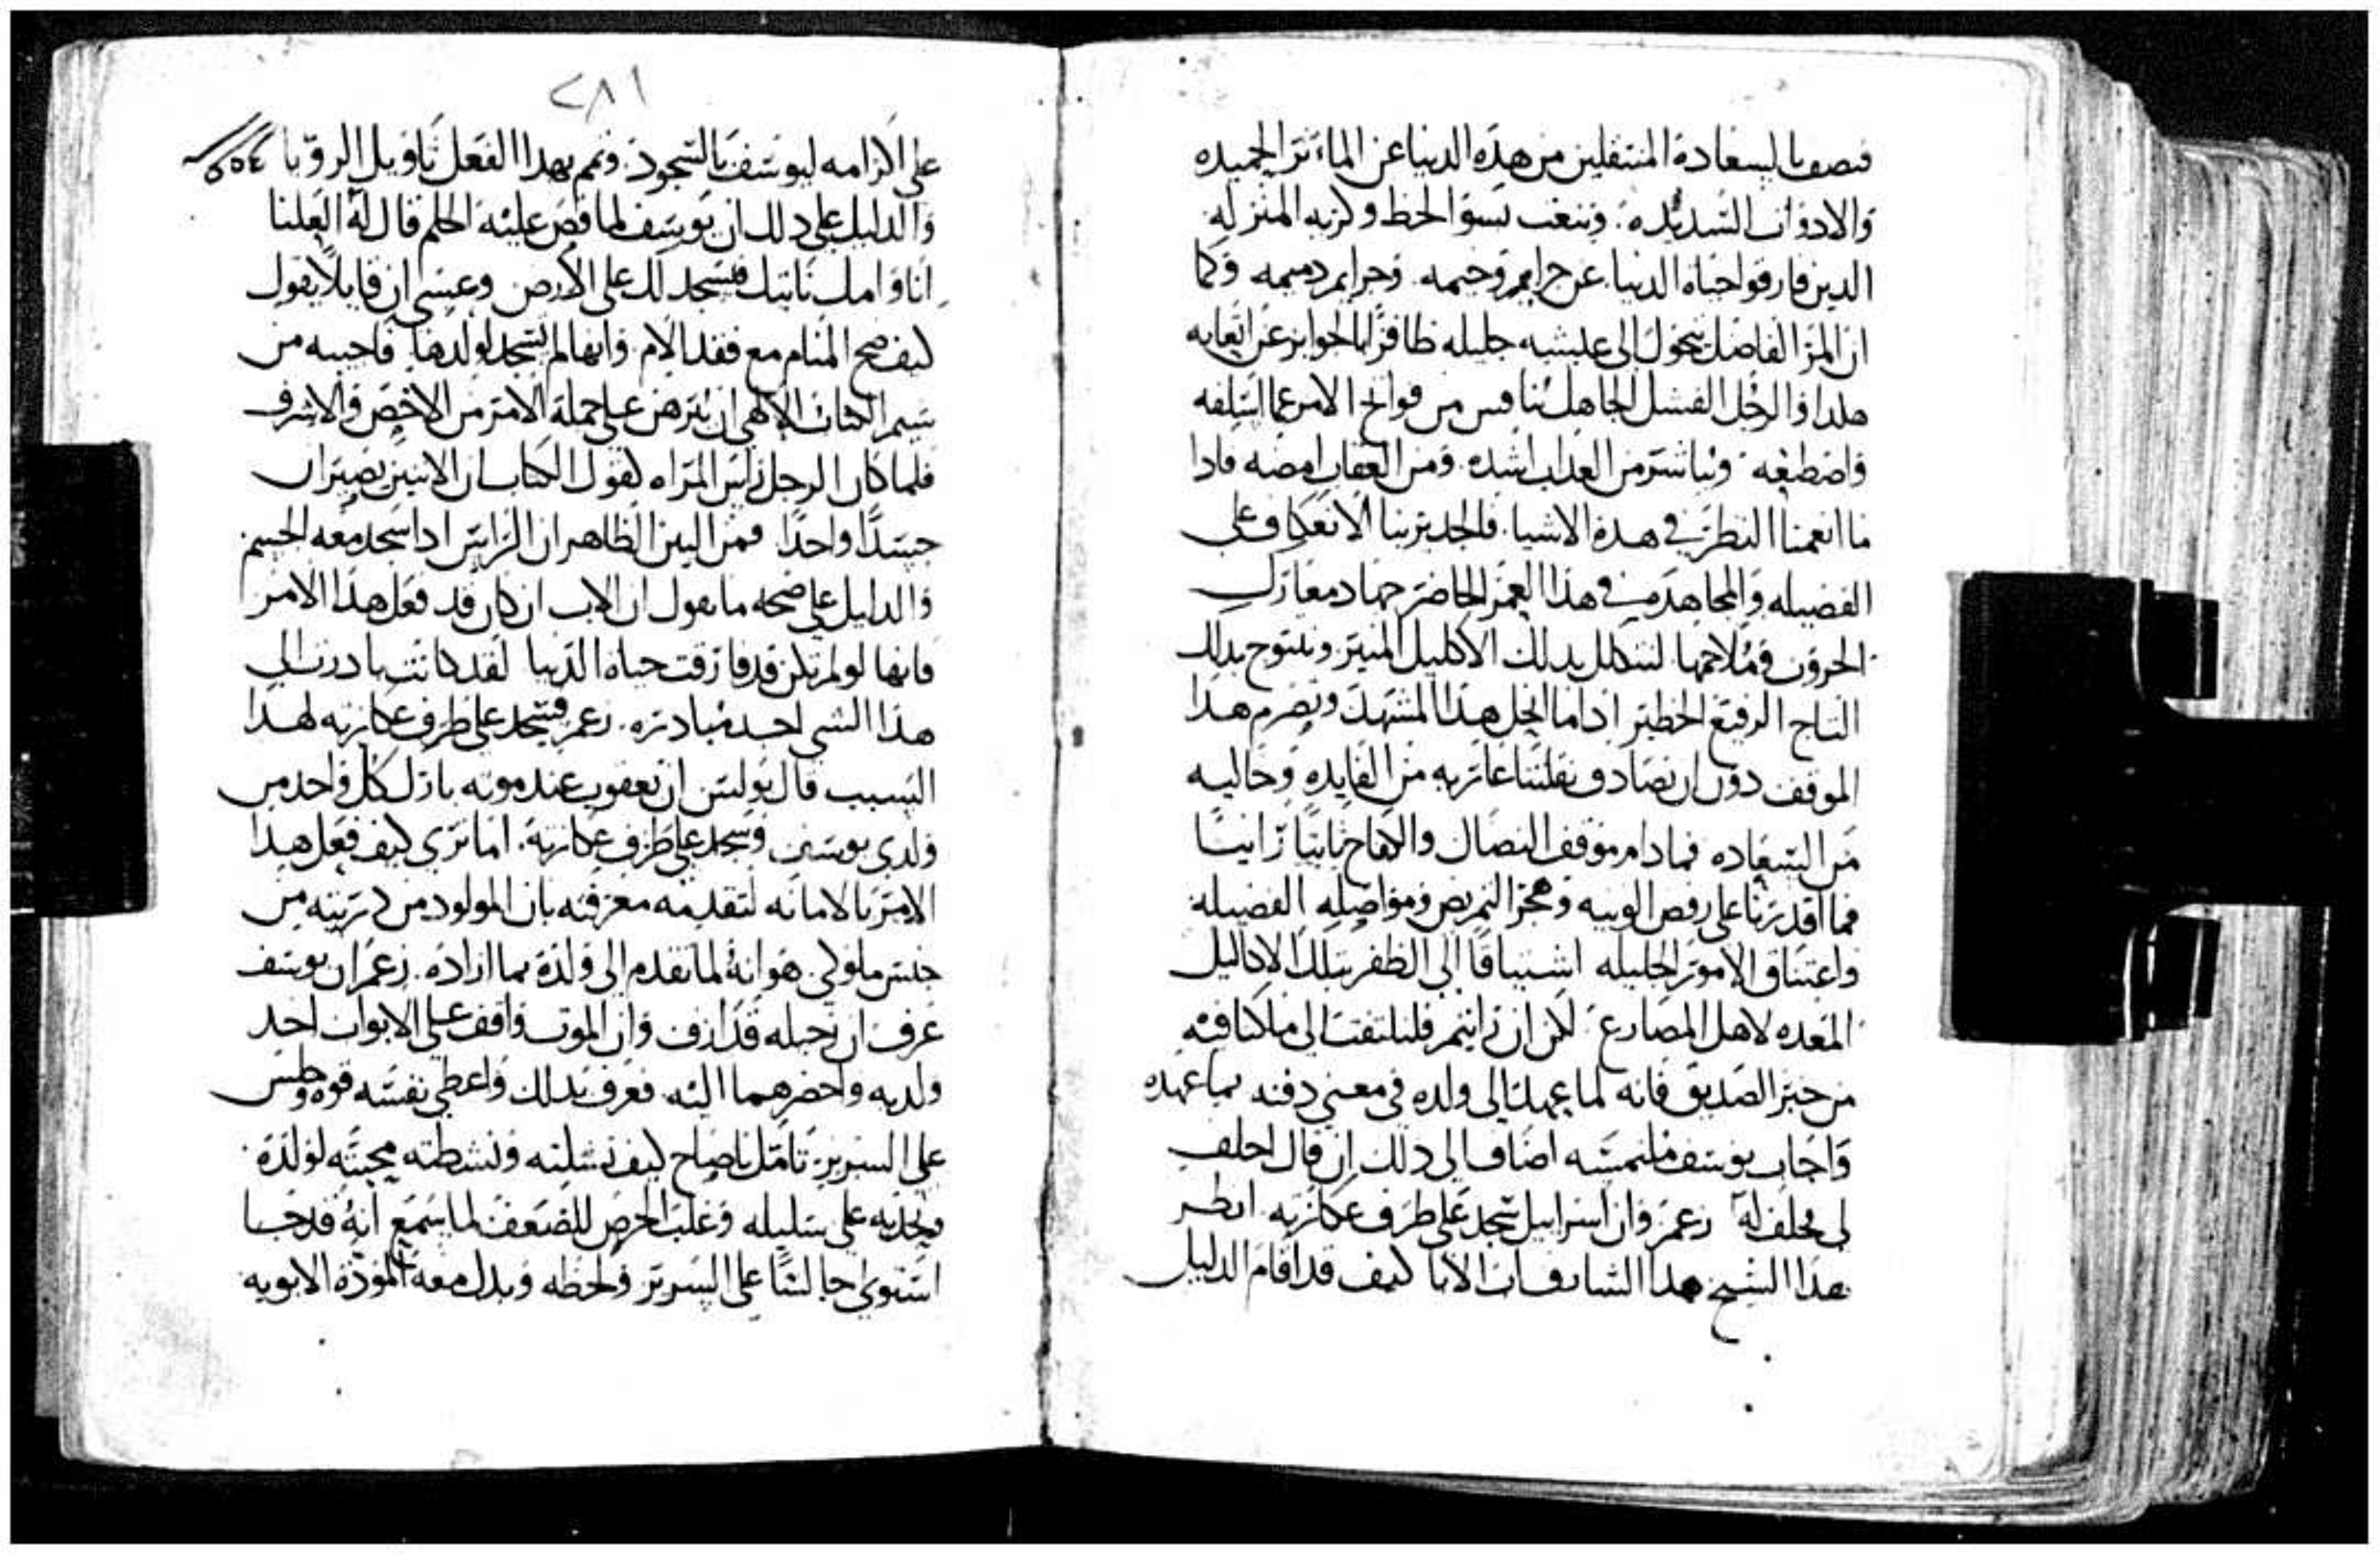 فنصف بالسعادة المنتقلين من هذه الدنيا عن المآثر الحميده
والادوات السديده. وننعت بسو الحظ وكربه المنزله
الدين فارقوا حياه الدنيا عن جرايم وخيمه. وجراير دميمه وكما
ان المر الفاضل يتحول الى عليشيه جليله ظافرًا بالجوايز عن اتعابه
هلدا والرجل الفشل الجاهل يناقس من فواتح الامر عما اسلفه
واصطنعه وبباشر من العداب اشده. ومن العقاب امضه فادا
ما انعمنا النظر في هده الاشيا. فالجدير بنا الانعكاف على
الفضيله والمجاهده في هذا العمر الحاضر جهاد معارك
الحروب وملاحمها لنتكلل بدلك الاكليل المنير ونتتوج بدلك
التاج الرفيع الخطير اداما انحل هذا المشهد وتصرم هدا
الموقف دون ان نصادف نفلتنا عاريه من الفايده وخاليه
من السعاده فمادام موقف النصال والكفاح ثابتًا راتبًا
فما اقدرنا على رفض الونيه وهجر التمريض ومواصله الفضيله
واعتناق الامور الجليله اشتياقًا الى الظفر بتلك الاكاليل
المعده لاهل المصارع لكن ان رايتم فلنلتفت الى ما كنا فيه
من خبر الصديق فانه لما عهد الى ولده في معنى دفنه بما عهده
واجاب يوسف ملتمسه اضاف الى دلك ان قال احلف
لي فحلف له زعم وان اسرابيل سجد على طرف عكازته انظر
هذا الشيخ هدا رييس الابا كيف قد اقام الدليل
٢٨١
على اكرامه ليوسف بالسجود. وتمم بهدا الفعل تاويل الرويا
والدليل على دلك ان يوسف لما قص عليه الحلم قال له العلنا
انا وامك ناتيك فنسجد لك على الارض وعسى ان قايلًا يقول
كيف صح المنام مع فقد الام وانها لم تسجد لولدها فاجيبه من
شيم الكتاب الالهي ان يبرهن على جملة الامر من الاخص والاشرف
فلما كان الرجل راس المراه لقول الكتاب ان الاتنين يصيران
جسدًا واحدًا فمن البين الظاهر ان الراس ادا سجد معه الجسم
والدليل على صحه ما نقول ان الاب ان كان قد فعل هذا الامر
فانها لو لم تكن قد فارقت حياه الدنيا لقد كانت بادرت الى
هذا الشي احد مبادره. زعم فسجد على طرف عكازته لهدا
السبب قال بولس ان يعقوب عند موته بارك كل واحد من
ولدي يوسف وسجد على طرف عكازته. اما ترى كيف فعل هدا
الامر بالامانه لتقدمه معرفته بان المولود من دريته من
جنس ملوكي هو انه لما تقدم الى ولده بما اراده. زعم ان يوسف
عرف ان رحيله قد ازف وان الموت واقف على الابواب احد
ولديه واحضرهما اليه فعرف بدلك واعطى نفسه قوه وجلس
على السرير تامل يا صاح كيف نشلته ونشطته محبته لولده
وتحننه على سليله وغلب الحرص للضعف لما سمع انه قد جا
استوى جالسًا على السرير ولحظه وبدل معه المودة الابويه